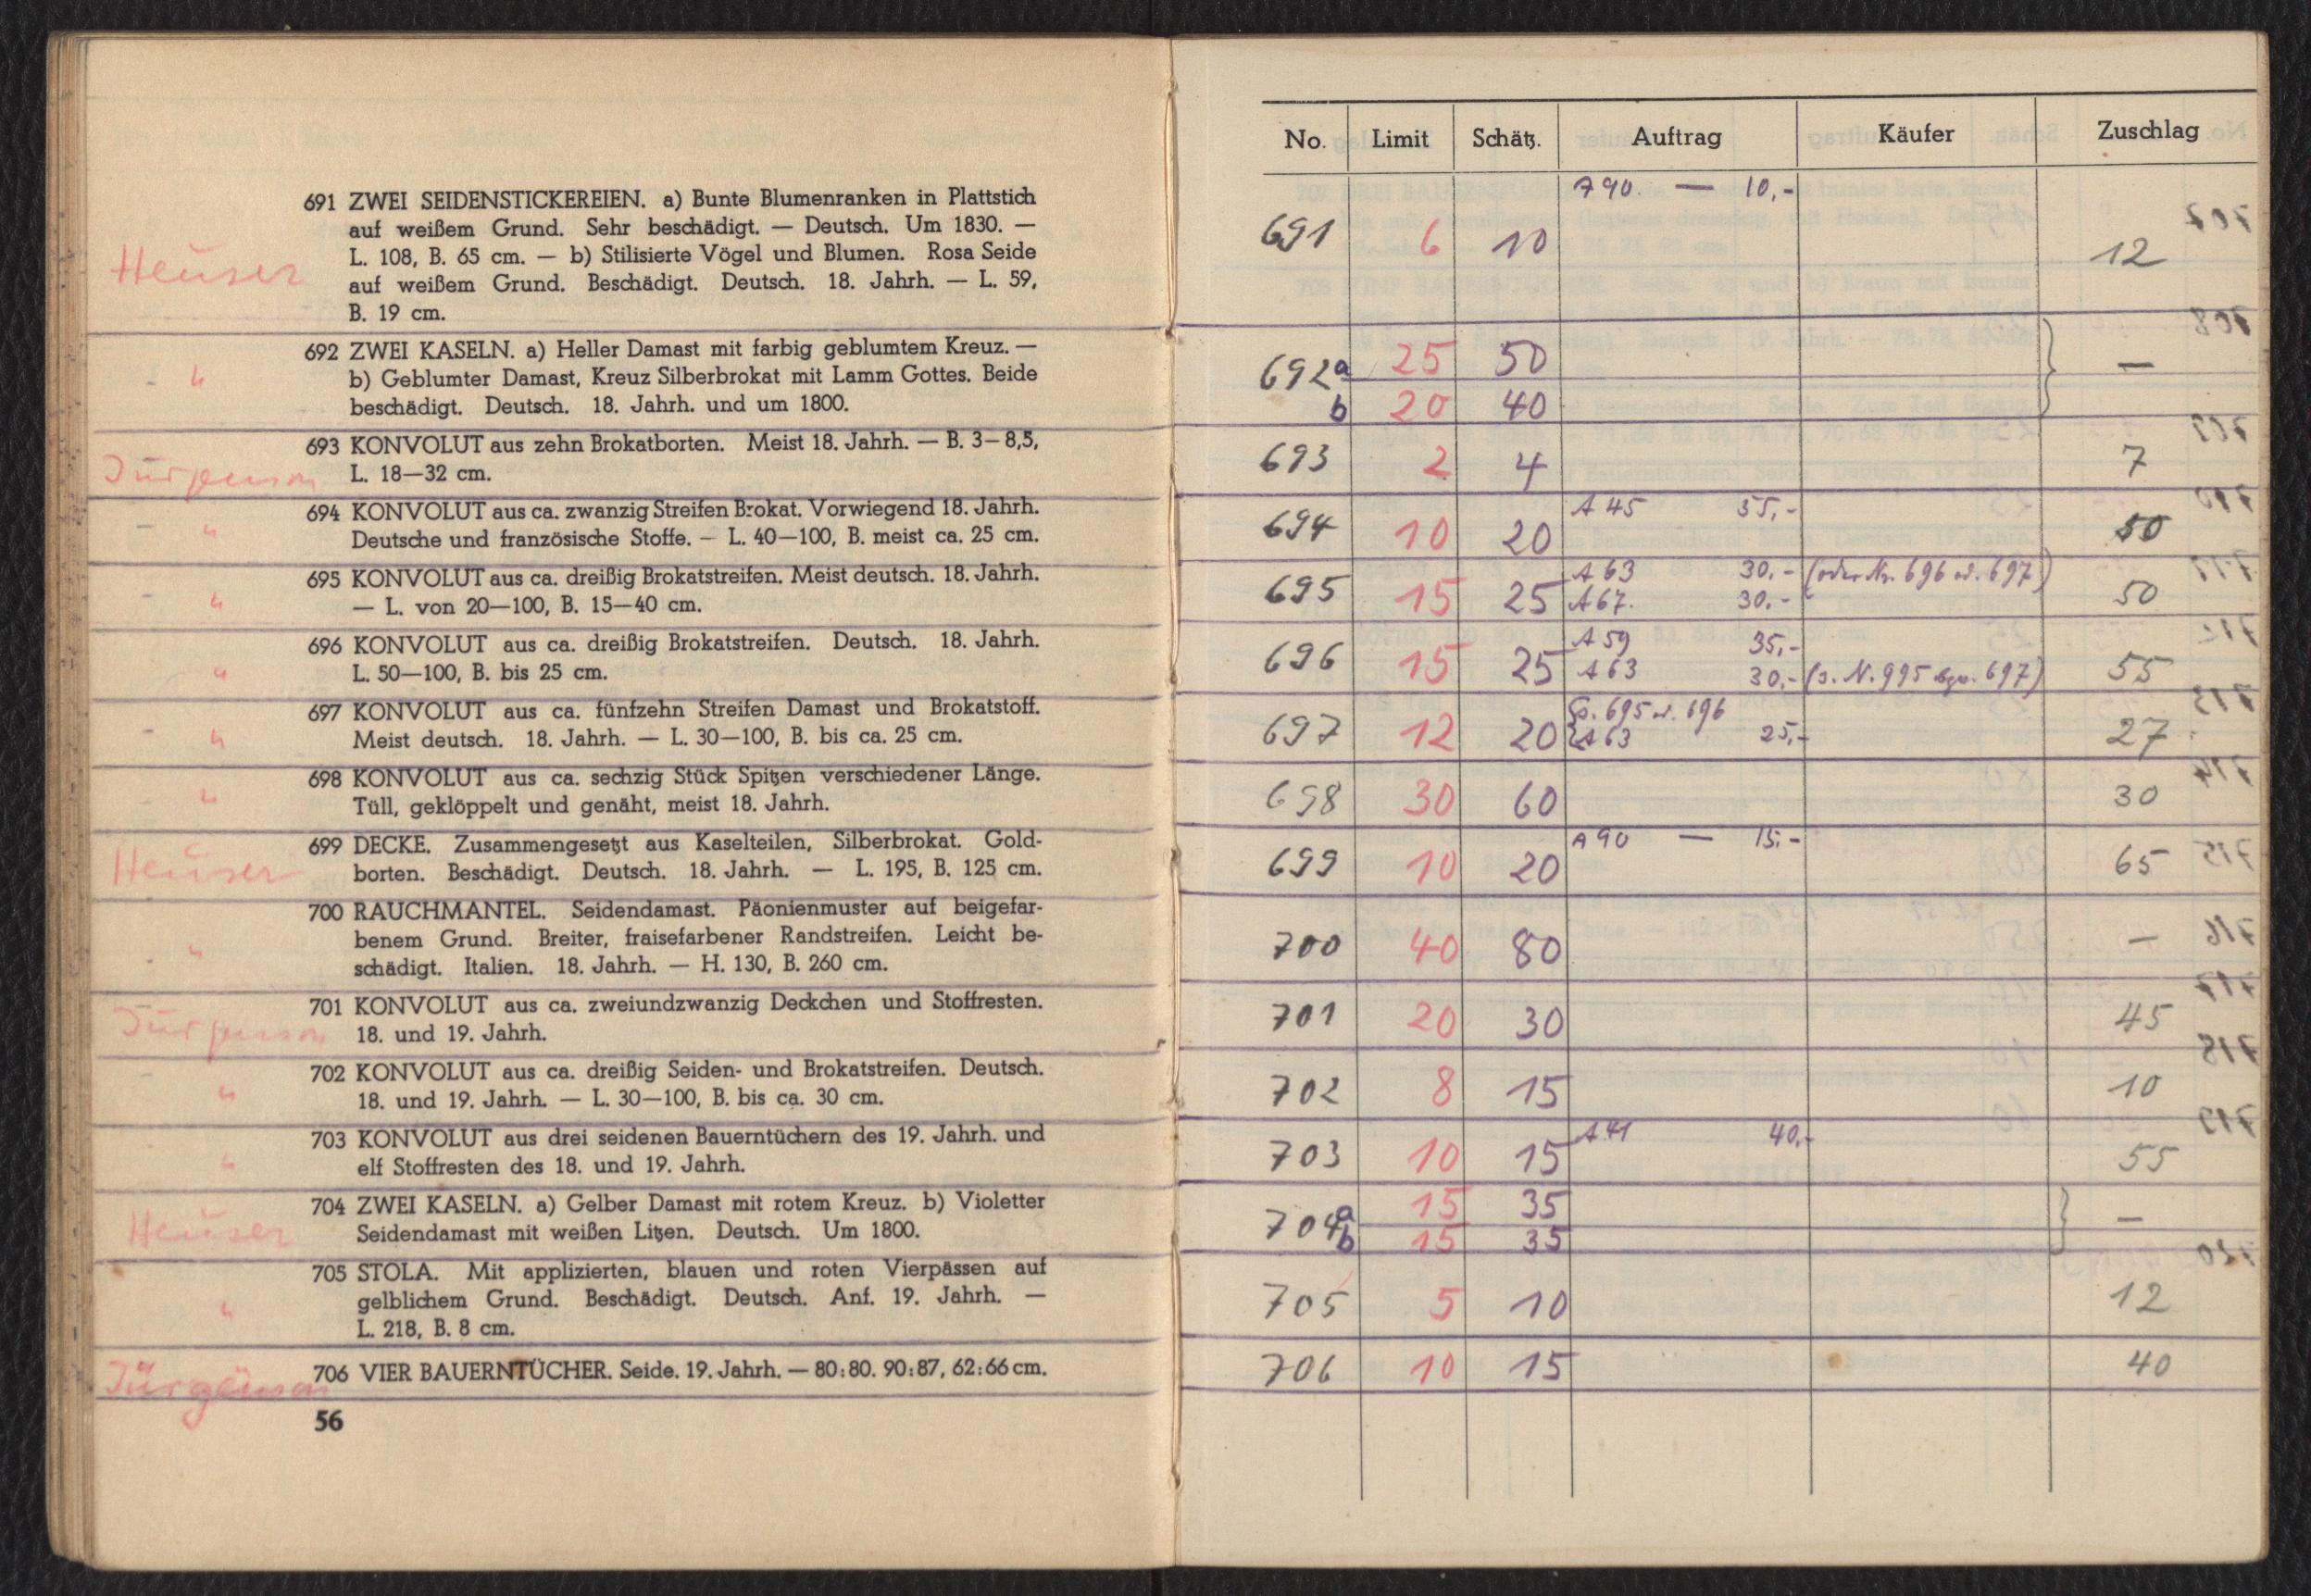 691 ZWEI SEIDENSTICKEREIEN. a) Bunte Blumenranken in Plattstich
auf weißem Grund. Sehr beschädigt. — Deutsch. Um 1830. —
L. 108, B. 65 cm. — b) Stilisierte Vögel und Blumen. Rosa Seide
Heuser
auf weißem Grund. Beschädigt. Deutsch. 18. Jahrh. — L. 59,
B. 19 cm.
692 ZWEI KASELN. a) Heller Damast mit farbig geblumtem Kreuz. —
- "
b) Geblumter Damast, Kreuz Silberbrokat mit Lamm Gottes. Beide
beschädigt. Deutsch. 18. Jahrh. und um 1800.
693 KONVOLUT aus zehn Brokatborten. Meist 18. Jahrh. — B. 3–8,5,
Jürgenson
L. 18—32 cm.
694 KONVOLUT aus ca. zwanzig Streifen Brokat. Vorwiegend 18. Jahrh.
- "
Deutsche und französische Stoffe. – L. 40—100, B. meist ca. 25 cm.
695 KONVOLUT aus ca. dreißig Brokatstreifen. Meist deutsch. 18. Jahrh.
- "
— L. von 20—100, B. 15—40 cm.
696 KONVOLUT aus ca. dreißig Brokatstreifen. Deutsch. 18. Jahrh.
"
L. 50—100, B. bis 25 cm.
697 KONVOLUT aus ca. fünfzehn Streifen Damast und Brokatstoff.
- "
Meist deutsch. 18. Jahrh. — L. 30—100, B. bis ca. 25 cm.
698 KONVOLUT aus ca. sechzig Stück Spitzen verschiedener Länge.
- "
Tüll, geklöppelt und genäht, meist 18. Jahrh.
699 DECKE. Zusammengesetzt aus Kaselteilen, Silberbrokat. Gold-
Heuser
borten. Beschädigt. Deutsch. 18. Jahrh. — L. 195, B. 125 cm.
700 RAUCHMANTEL. Seidendamast. Päonienmuster auf beigefar-
benem Grund. Breiter, fraisefarbener Randstreifen. Leicht be-
- "
schädigt. Italien. 18. Jahrh. — H. 130, B. 260 cm.
701 KONVOLUT aus ca. zweiundzwanzig Deckchen und Stoffresten.
Jürgenson
18. und 19. Jahrh.
702 KONVOLUT aus ca. dreißig Seiden- und Brokatstreifen. Deutsch.
- "
18. und 19. Jahrh. — L. 30—100, B. bis ca. 30 cm.
703 KONVOLUT aus drei seidenen Bauerntüchern des 19. Jahrh. und
- "
elf Stoffresten des 18. und 19. Jahrh.
704 ZWEI KASELN. a) Gelber Damast mit rotem Kreuz. b) Violetter
Heuser
Seidendamast mit weißen Litzen. Deutsch. Um 1800.
705 STOLA. Mit applizierten, blauen und roten Vierpässen auf
"
gelblichem Grund. Beschädigt. Deutsch. Anf. 19. Jahrh. —
L. 218, B. 8 cm.
Jürgenson
706 VIER BAUERNTÜCHER. Seide. 19. Jahrh. — 80:80. 90:87, 62:66 cm.
56
No. Limit Schätz. Auftrag Käufer Zuschlag
A 90 — 10,-
691 6 10 12
692 a 25 50 —
b 20 40
693 2 4 7
A 45 35,-
694 10 20 50
A 63 30.- (oder Nr. 696 od. 697)
695 15 25 A 67. 30.- 50
A 59 35,-
696 15 25 A 63 30,- (s. N. 995 bzw. 697) 55
s. 695 u. 696
697 12 20 A 63 25,- 27
698 30 60 30
A 90 — 15.-
699 10 20 65
700 40 80 —
701 20 30 45
702 8 15 10
A 41 40,-
703 10 15 55
704 a 15 35 —
b 15 35
705 5 10 12
706 10 15 40